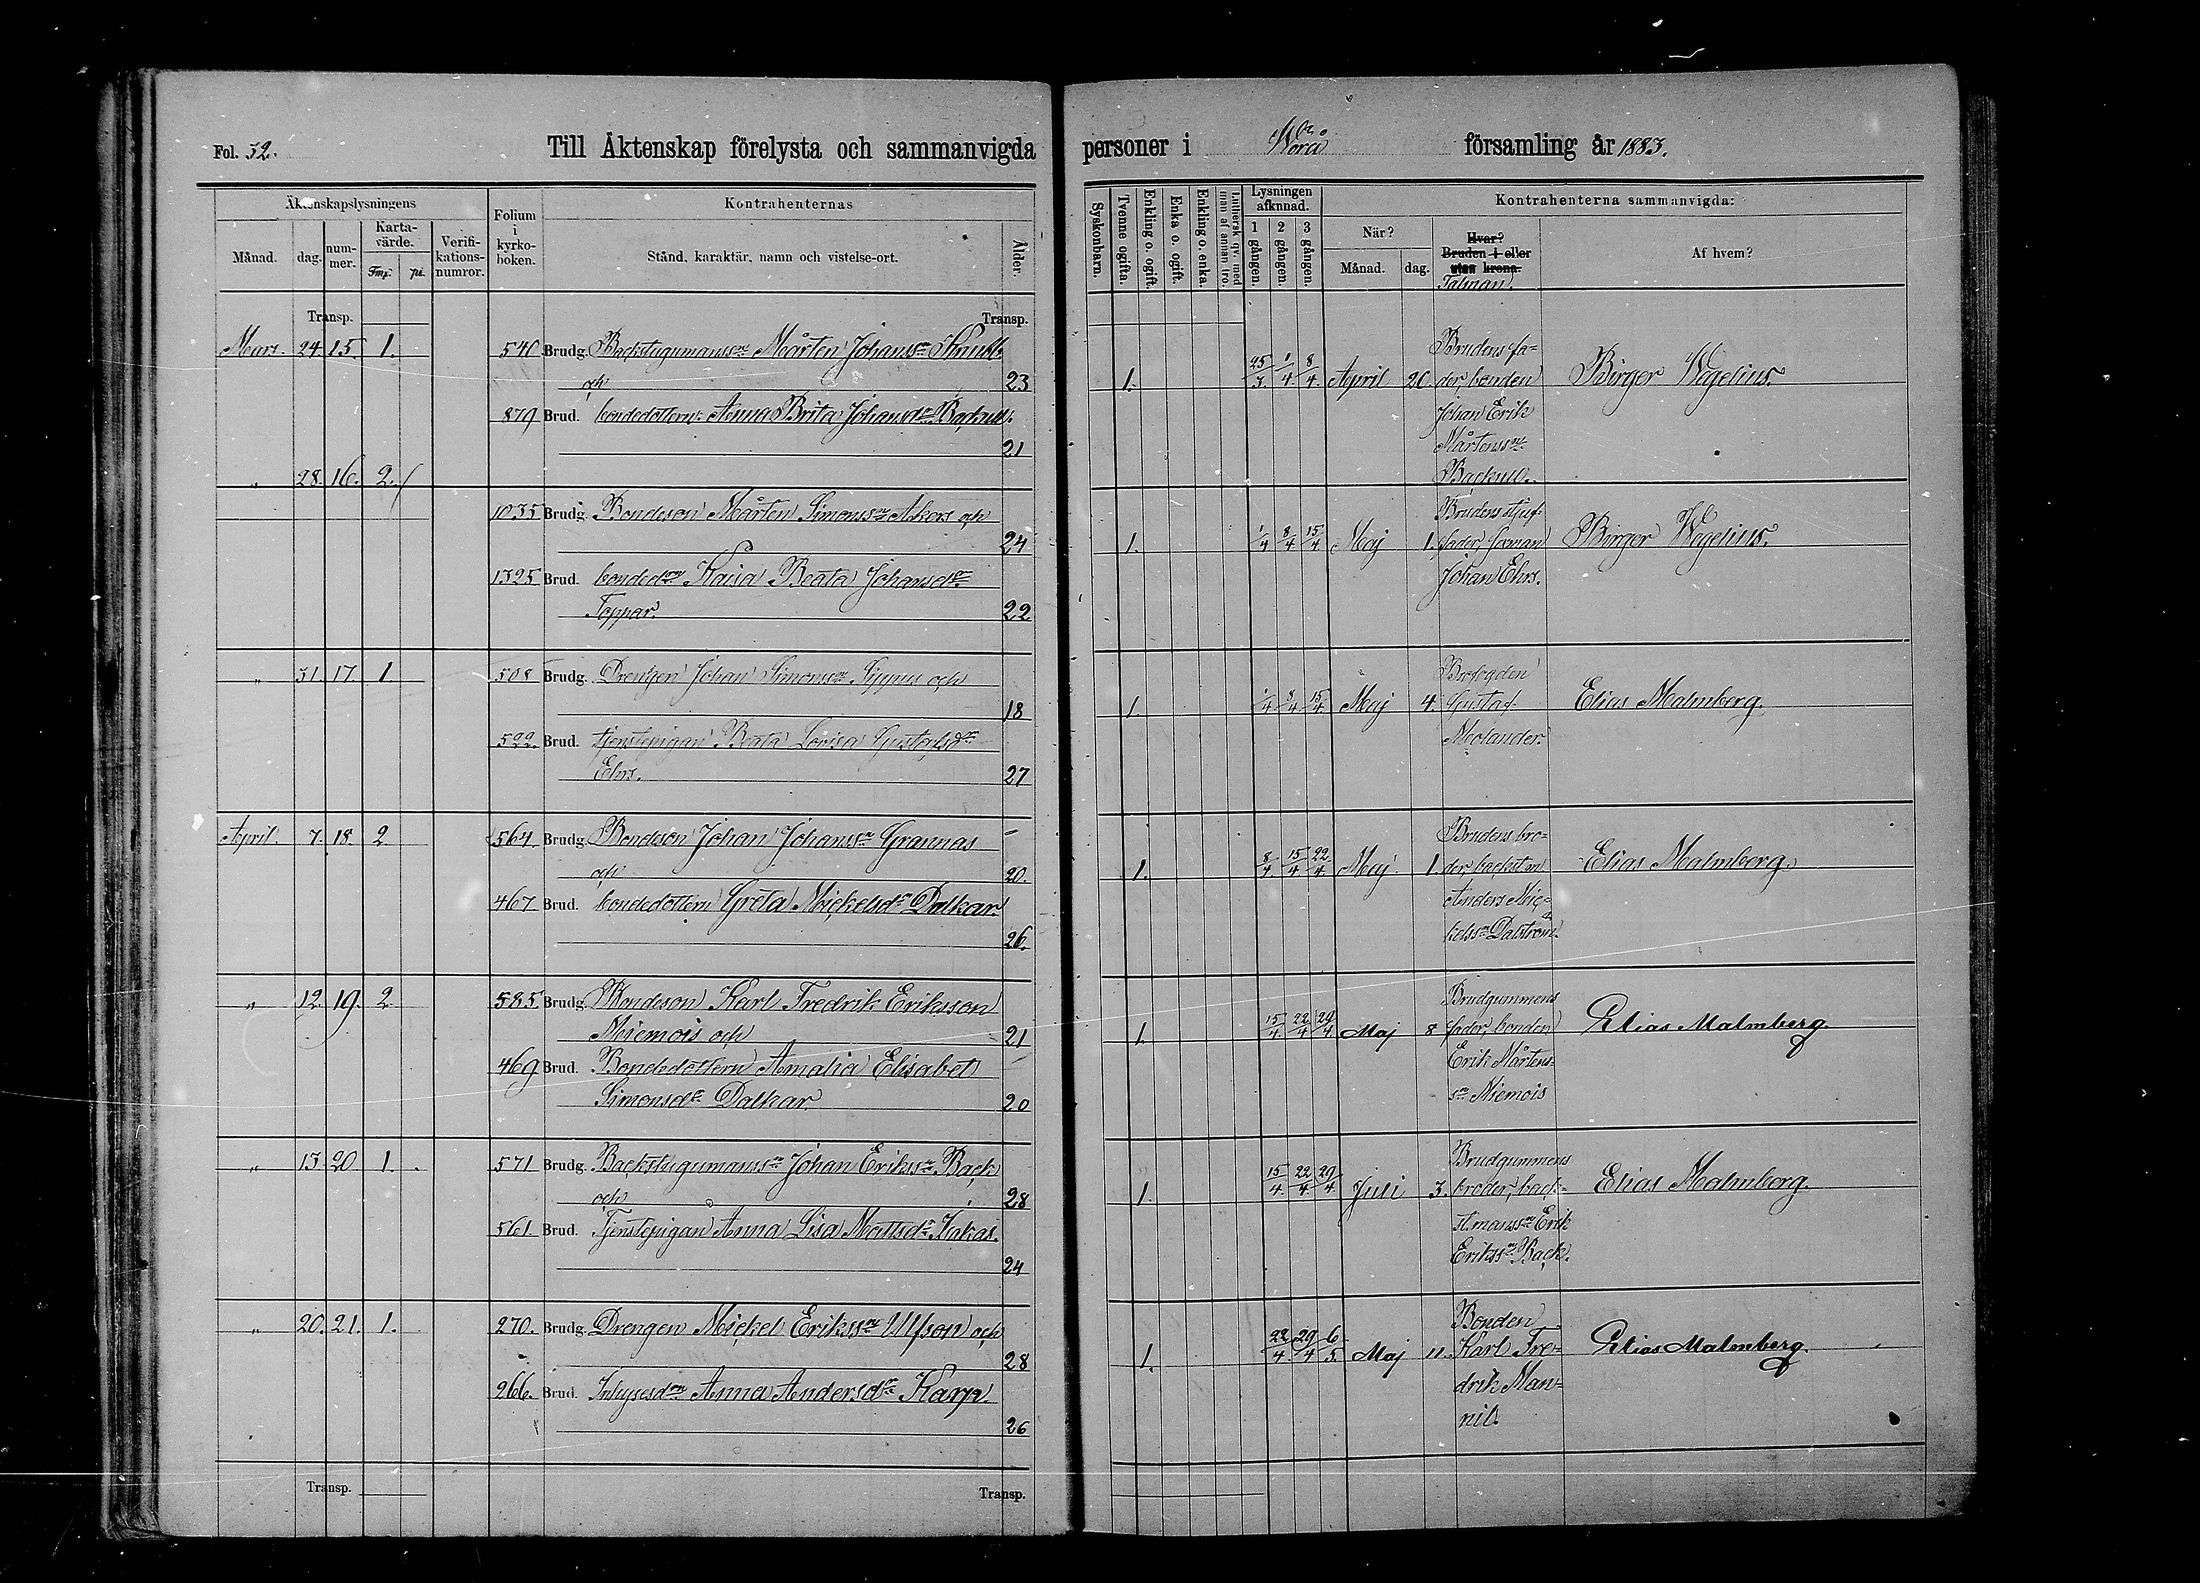 Fol. 52.
Till Äktenskap förelysta och sammanvigda
Äktenskapslysningens
Månad.
dag.
num-
mer.
Karta-
värde.
Fmk
pi.
Verifi-
kations-
numror.
Folium
i
kyrko-
boken.
Kontrahenternas
Stånd, karaktär, namn och vistelse-ort.
Ålder.
Transp.
Transp.
Mars. 24. 15. 1. 540. Brudg. Backstugumanssn Mårten Johanssn
och 23
879 Brud. bondedottern Anna Brita Johansdr Backull.
21
" 28. 16. 2.
1035 Brudg. Bondeson Mårten Simonssn Akers och
24
1325 Brud. bonded:rn Kaisa Beata Johansdr
Toppar. 22
" 31. 17. 1 508 Brudg. Drengen Johan Simonssn och
18
522. Brud. tjenstepigan Beata Lovisa Gustafsdr
Ehrs. 27
April. 7. 18. 2 564 Brudg. Bondeson Johan Johanssn Grannas
och 20.
467 Brud. bondedottern Greta Mickelsdr Dalkar.
26.
" 12. 19. 2 585. Brudg. Bondeson Karl Fredrik Eriksson
Miemois och 21
469 Brud. Bondedottern Amalia Elisabet
Simonsdr Dalkar. 20
" 13. 20 1. 571 Brudg. Backstugumanssn Johan Erikssn Back
och 28
561. Brud. Tjenstepigan Anna Lisa Mattsdr Kakas.
24
" 20. 21. 1. 270. Brudg. Drengen Mickel Erikssn Ulfson och
28
266. Brud. Inhysesdrn Anna Andersdr Karp.
26
Transp.
Transp.
personer i Vörå församling år 1883.
Syskonbarn.
Tvenne ogifta.
Enkling o. ogift.
Enka o. ogift.
Enkling o. enka.
Luthersk qv. med
man af annan tro.
Lysningen
afkunnad.
1 gången.
2 gången.
3 gången.
Kontrahenterna sammanvigda:
När?
Månad.
dag.
Hvar?
Bruden + eller
utan krona.
Talman.
Af hvem?
Brudens fa-
1. 25/3 1/4 8/4. April 20. der, bonden Birger Wegelius.
Johan Erik
Mårtenssn
Backull.
Brudens stjuf-
1. 1/4 8/4 15/4 Maj 1. fader, Birger Wegelius.
Johan Ehrs.
1. 1/4 8/4 15/4 Maj 4. Gustaf Elias Malmberg.
Molander.
Brudens bro-
1. 8/4 15/4 22/4 Maj 1. der, backst.m Elias Malmberg.
Anders Mic-
kelssn Dalström.
Brudgummens
1. 15/4 22/4 29/4 Maj 8 fader, bonden Elias Malmberg.
Erik Mårtens-
sn Miemois
Brudgummens
1. 15/4 22/4 29/4 Juli 3. broder, back- Elias Malmberg.
st.manssn Erik
Erikssn Back.
Bonden
1. 22/4 29/4 6/5. Maj 11. Karl Fre- Elias Malmberg.
drik Man-
nil.